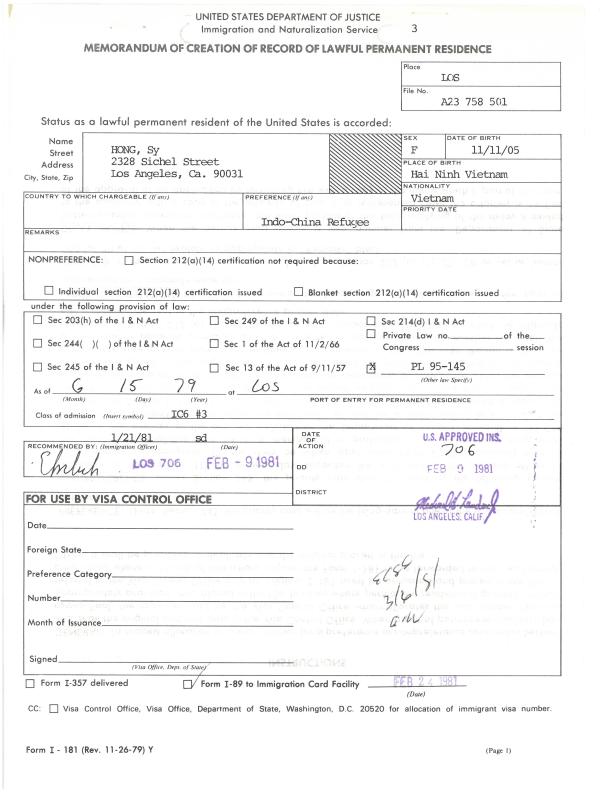 UNITED STATES DEPARTMENT OF JUSTICE
Immigration and Naturalization Service 3
MEMORANDUM OF CREATION OF RECORD OF LAWFUL PERMANENT RESIDENCE
Place
LOS
File No.
A23 758 501
Status as a lawful permanent resident of the United States is accorded:
Name
Street
Address
City, State, Zip
HONG, Sy
2328 Sichel Street
Los Angeles, Ca. 90031
SEX
F
DATE OF BIRTH
11/11/05
PLACE OF BIRTH
Hai Ninh Vietnam
NATIONALITY
Vietnam
COUNTRY TO WHICH CHARGEABLE (If any)
PREFERENCE (If any)
Indo-China Refugee
PRIORITY DATE
REMARKS
NONPREFERENCE: Section 212(a)(14) certification not required because:
Individual section 212(a)(14) certification issued Blanket section 212(a)(14) certification issued
under the following provision of law:
Sec 203(h) of the I & N Act Sec 249 of the I & N Act Sec 214(d) I & N Act
Sec 244( )( ) of the I & N Act Sec 1 of the Act of 11/2/66 Private Law no. of the
Congress session
Sec 245 of the I & N Act Sec 13 of the Act of 9/11/57 X PL 95-145
(Other law Specify)
As of 6 15 79 at LOS
(Month) (Day) (Year) PORT OF ENTRY FOR PERMANENT RESIDENCE
Class of admission (Insert symbol) IC6 #3
1/21/81 sd
RECOMMENDED BY: (Immigration Officer) (Date)
LOS 706 FEB -9 1981
DATE OF ACTION
DD
DISTRICT
U.S. APPROVED INS.
706
FEB 9 1981
LOS ANGELES, CALIF
FOR USE BY VISA CONTROL OFFICE
Date
Foreign State
Preference Category
Number
Month of Issuance
Signed
(Visa Office, Dept. of State)
3/6/81
Form I-357 delivered Form I-89 to Immigration Card Facility FEB 24 1981
(Date)
CC: Visa Control Office, Visa Office, Department of State, Washington, D.C. 20520 for allocation of immigrant visa number.
Form I - 181 (Rev. 11-26-79) Y (Page 1)